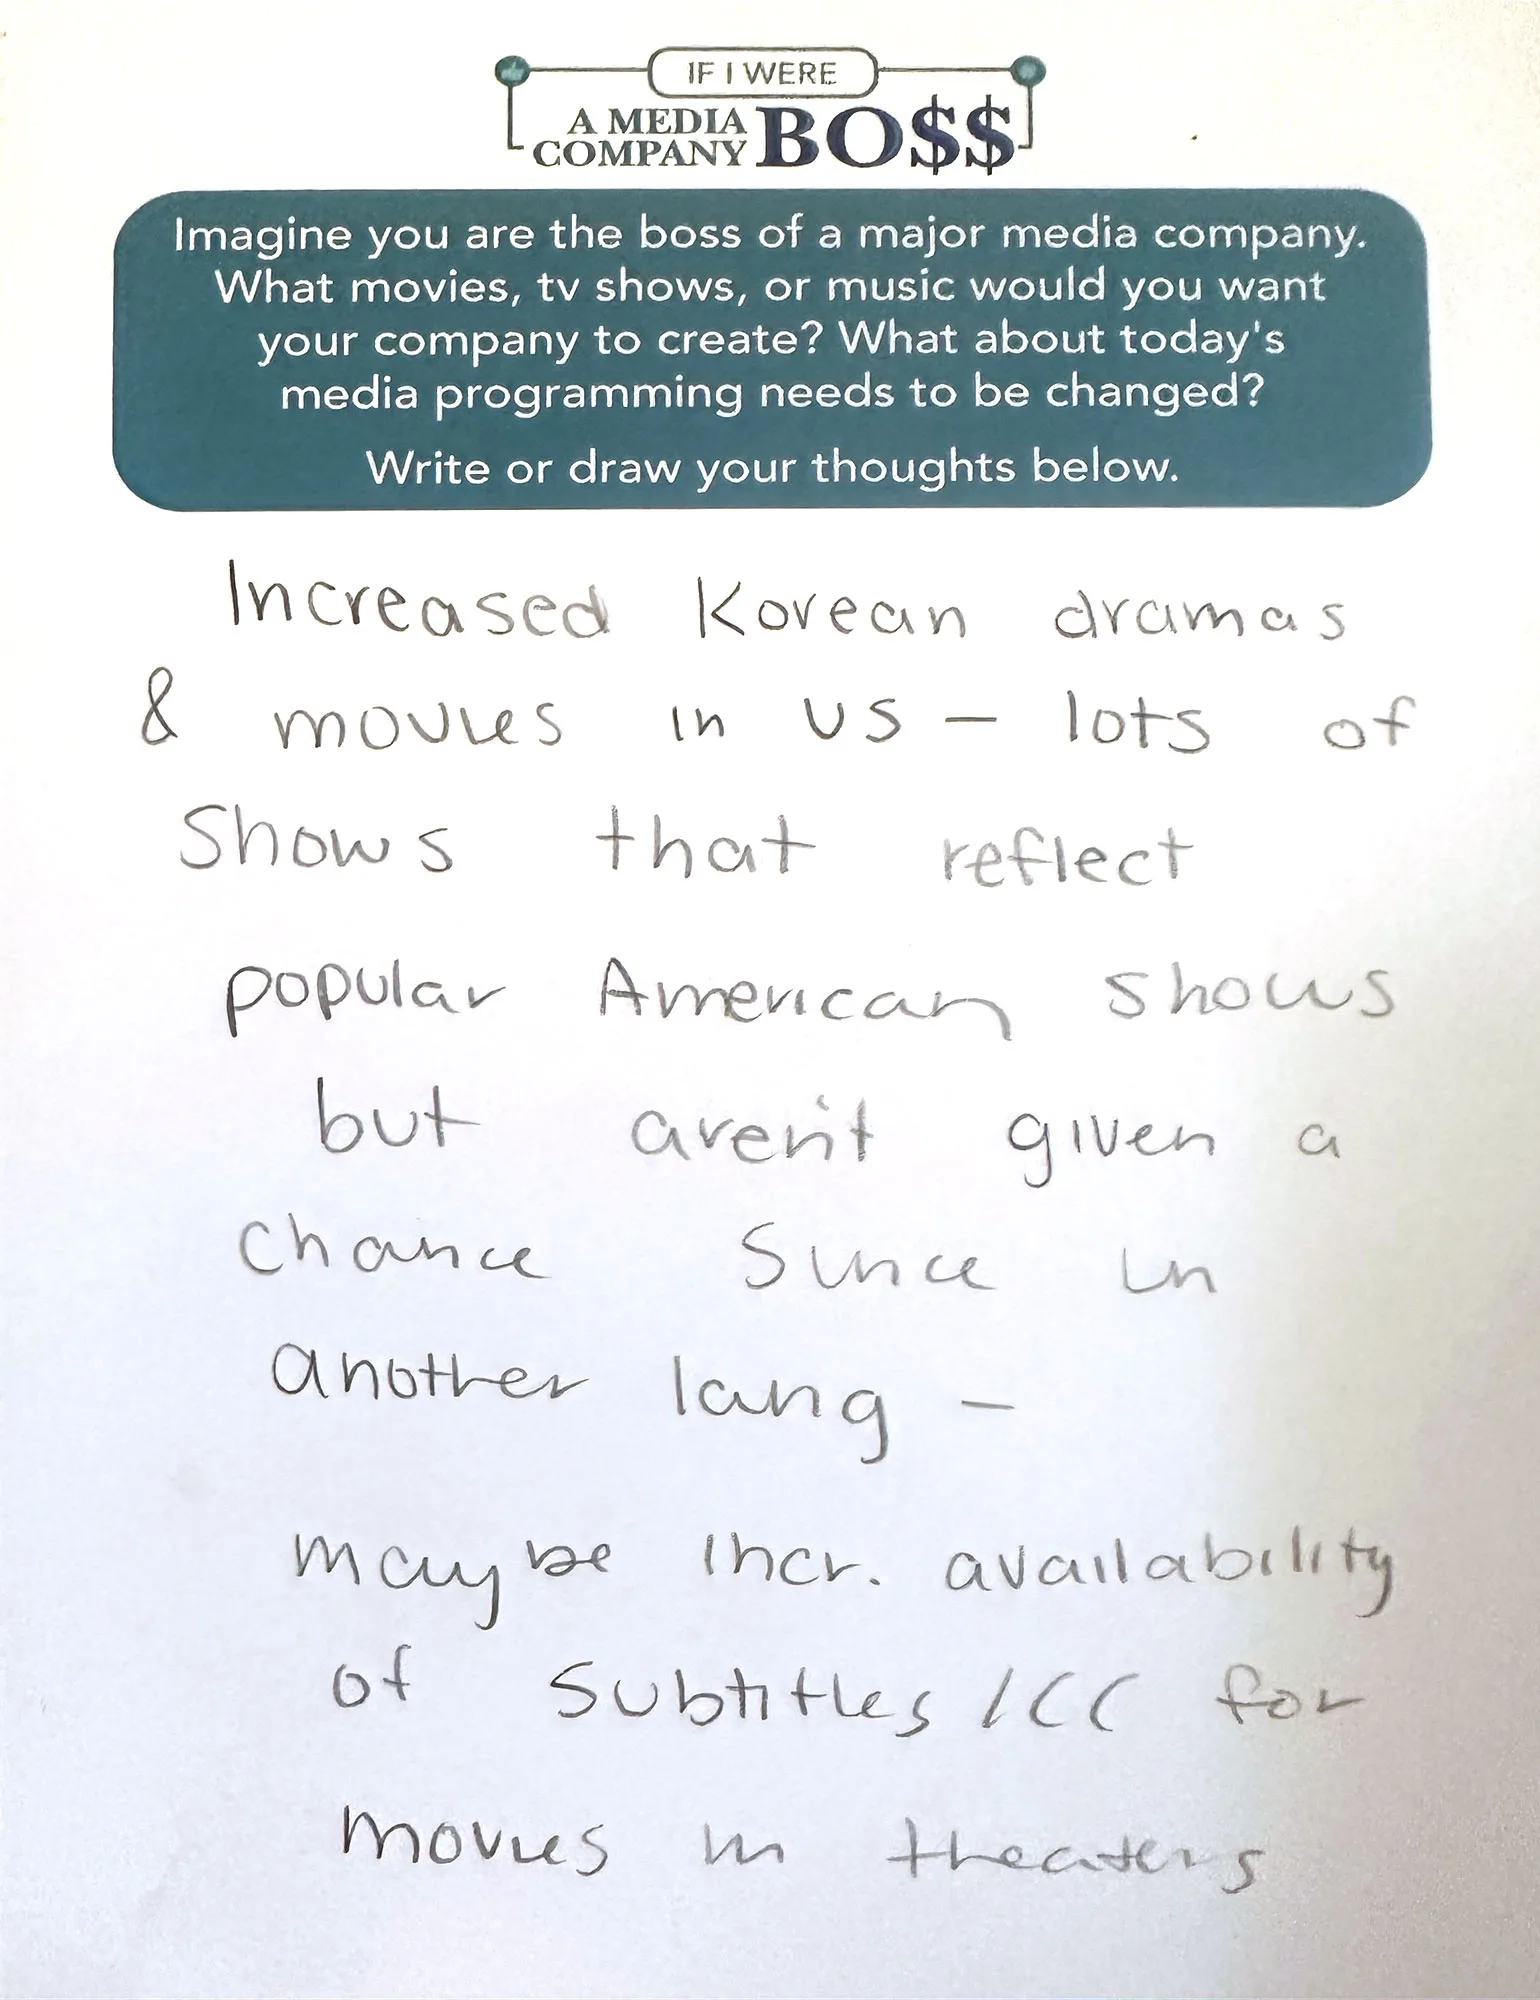 IF I WERE
A MEDIA
COMPANY BO$$
Imagine you are the boss of a major media company.
What movies, tv shows, or music would you want
your company to create? What about today's
media programming needs to be changed?
Write or draw your thoughts below.
Increased Korean dramas
& movies in US – lots of
Shows that reflect
popular American shows
but aren't given a
chance since in
another lang –
maybe incr. availability
of subtitles / CC for
movies in theaters